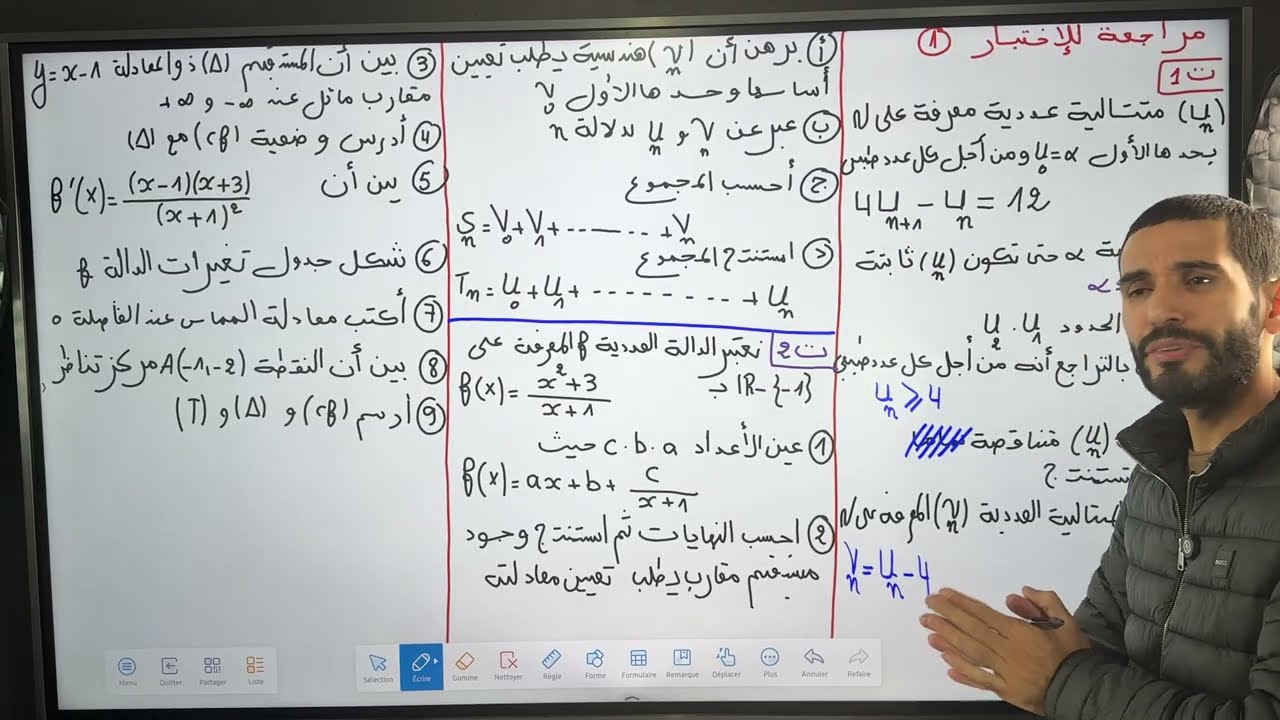 مراجعة للإختبار ①
ت1
(Uₙ) متتالية عددية معرفة على N
بحدها الأول U₀=α و من أجل كل عدد طبيعي
4Uₙ₊₁ - Uₙ = 12
α حتى تكون (Uₙ) ثابتة
الحدود U₁ . U₂
بالتراجع أنه من أجل كل عدد طبيعي
Uₙ ⩾ 4
(Uₙ) متناقصة
تستنتج
المتتالية العددية (Vₙ) المعرفة على N
Vₙ = Uₙ - 4
أ) برهن أن (Vₙ) هندسية يطلب تعيين
أساسها وحدها الأول V₀
ب) عبر عن Vₙ و Uₙ بدلالة n
ج) أحسب المجموع
Sₙ = V₀ + V₁ + ........ + Vₙ
د) استنتج المجموع
Tₙ = U₀ + U₁ + - - - - - - - - + Uₙ
ت2 نعتبر الدالة العددية f المعرفة على
IR-{-1} بـ f(x) = (x²+3)/(x+1)
① عين الأعداد c . b . a حيث
f(x) = ax + b + c/(x+1)
② احسب النهايات ثم استنتج وجود
مستقيم مقارب يطلب تعيين معادلته
③ بين أن المستقيم (Δ) ذو المعادلة y = x-1
مقارب مائل عند ∞- و ∞+
④ أدرس وضعية (Cf) مع (Δ)
⑤ بين أن f'(x) = (x-1)(x+3)/(x+1)²
⑥ شكل جدول تغيرات الدالة f
⑦ أكتب معادلة المماس عند الفاصلة 0
⑧ بين أن النقطة A(-1,-2) مركز تناظر
⑨ أرسم (Cf) و (Δ) و (T)
Menu
Quitter
Partager
Liste
Sélection
Écrire
Gomme
Nettoyer
Règle
Forme
Formulaire
Remarque
Déplacer
Plus
Annuler
Refaire
BOSS